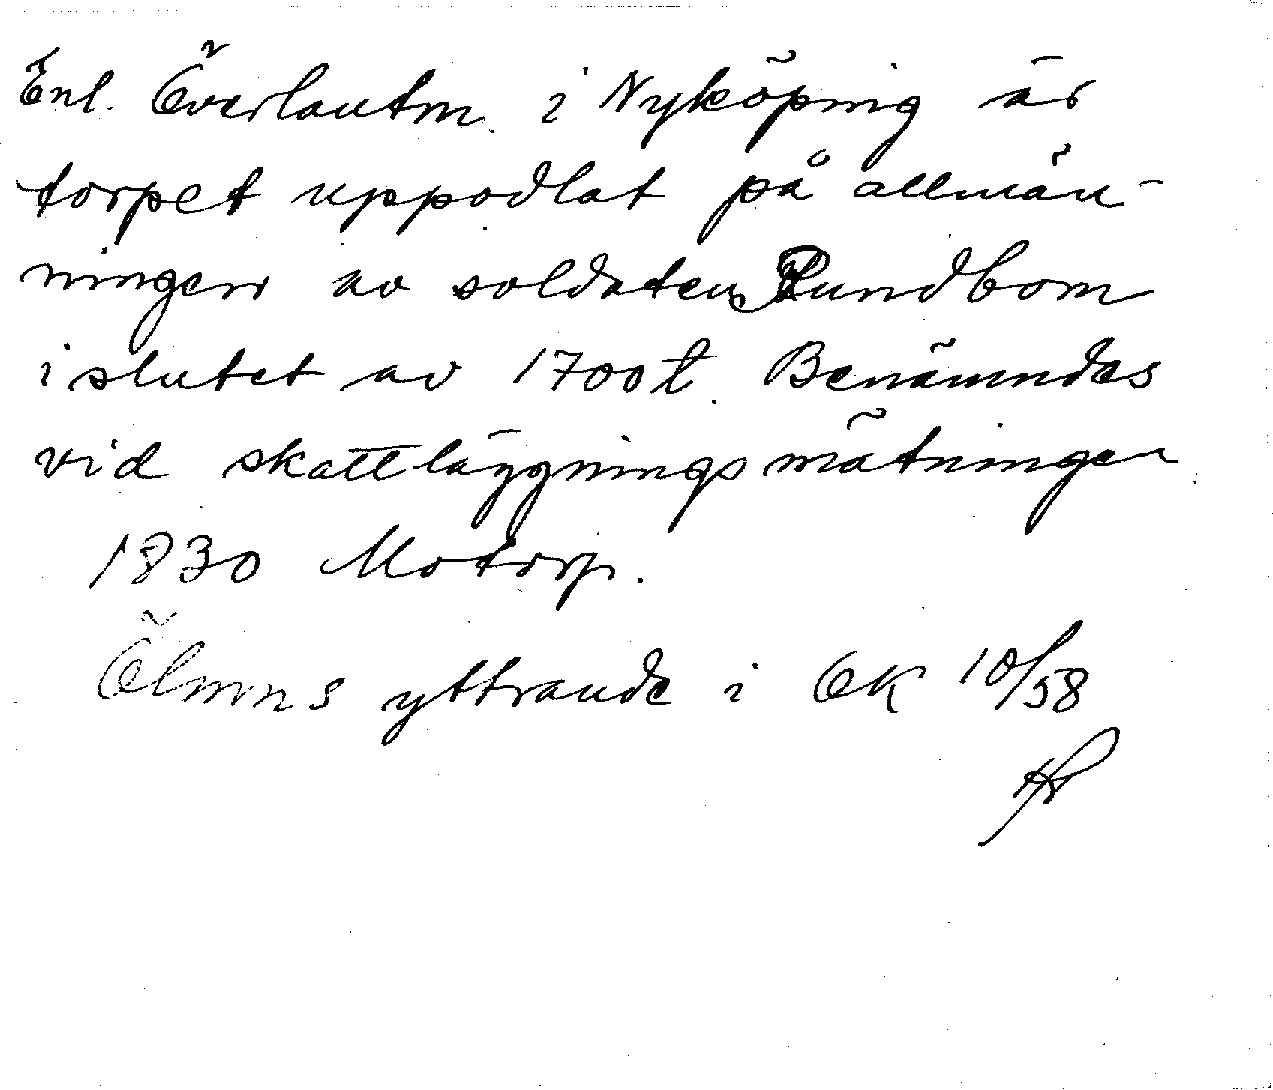 Enl. Överlantm. i Nyköping är
torpet uppodlat på allmän-
ningen av soldaten Rundbom
i slutet av 1700t. Benämndes
vid skattläggningsmätningen
1830 Motorp.
Ölmns yttrande i ÖK 10/58